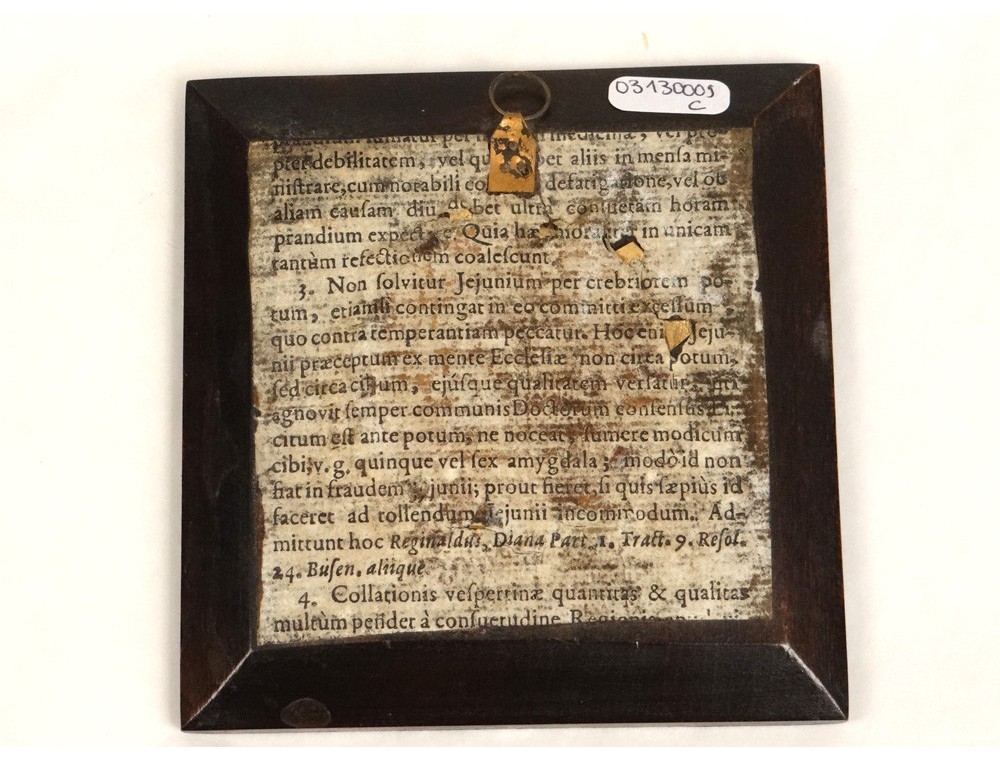 03130009
C
medicinæ, vel pro-
pter debilitatem, vel aliis in mensa mi-
nistrare, cum notabili defatigatione, vel ob
aliam causam diu debet ultra consuetam horam
prandium Quia hæ in unicam
tantùm refectionem coalescunt.
3. Non solvitur Jejunium per crebriorem po-
tum, etiamsi contingat in eo committi excessum,
quo contra temperantiam peccatur. Hoc enim Jeju-
nii præceptum ex mente Ecclesiæ non circa potum,
sed circa cibum, ejúsque qualitatem versatur, uti
agnovit semper communis Doctorum consensus. Li-
citum est ante potum, ne noceat, sumere modicum
cibi, v. g. quinque vel sex amygdala; modò id non
fiat in fraudem jejunii; prout fieret, si quis sæpiùs id
faceret ad tollendum jejunii incommodum. Ad-
mittunt hoc Reginaldus, Diana Part. 1. Tract. 9. Resol.
24. Busen. aliique
4. Collationis vespertinæ quantitas & qualitas
multùm pendet à consuetudine